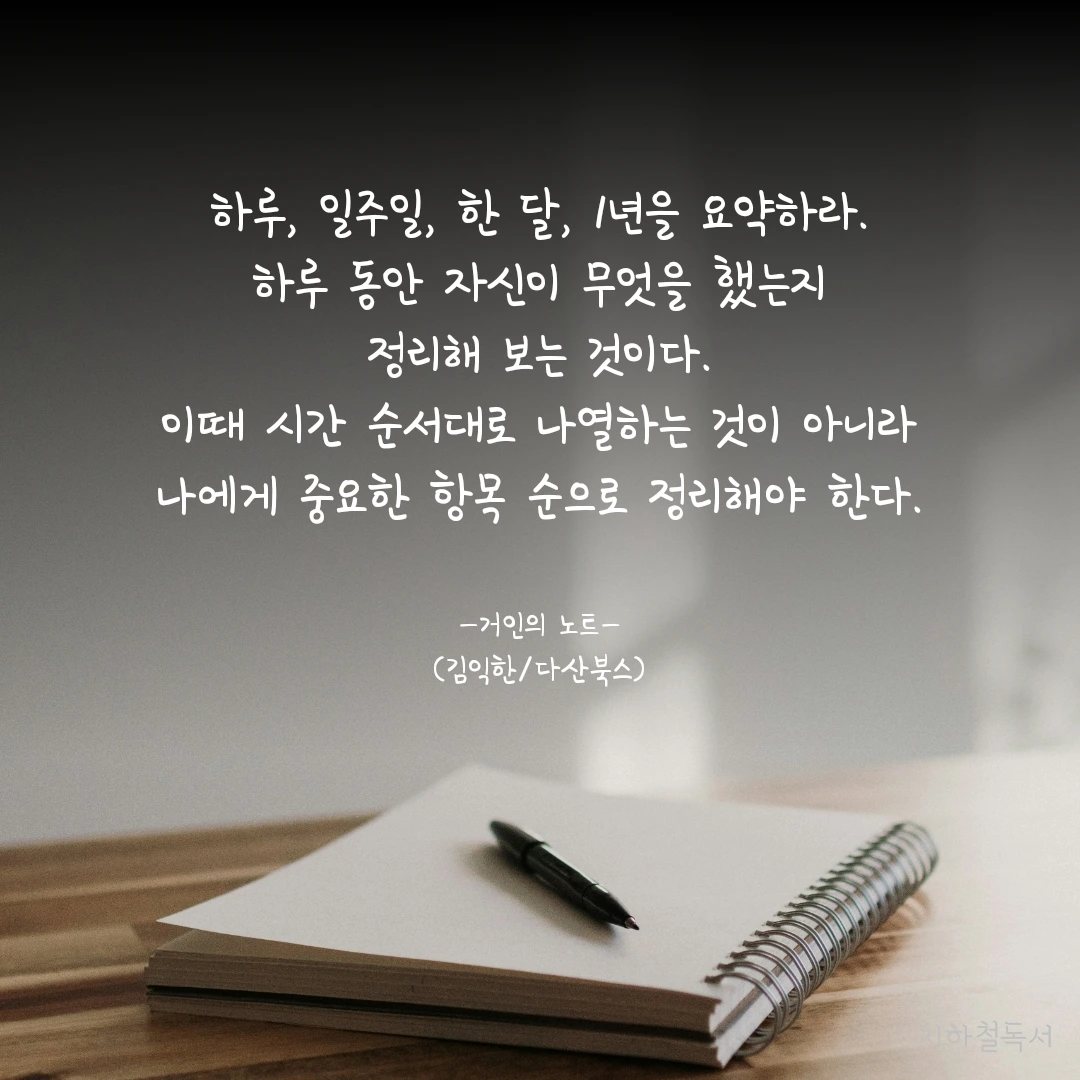 하루, 일주일, 한 달, 1년을 요약하라.
하루 동안 자신이 무엇을 했는지
정리해 보는 것이다.
이때 시간 순서대로 나열하는 것이 아니라
나에게 중요한 항목 순으로 정리해야 한다.
-거인의 노트-
(김익한/다산북스)
지하철독서